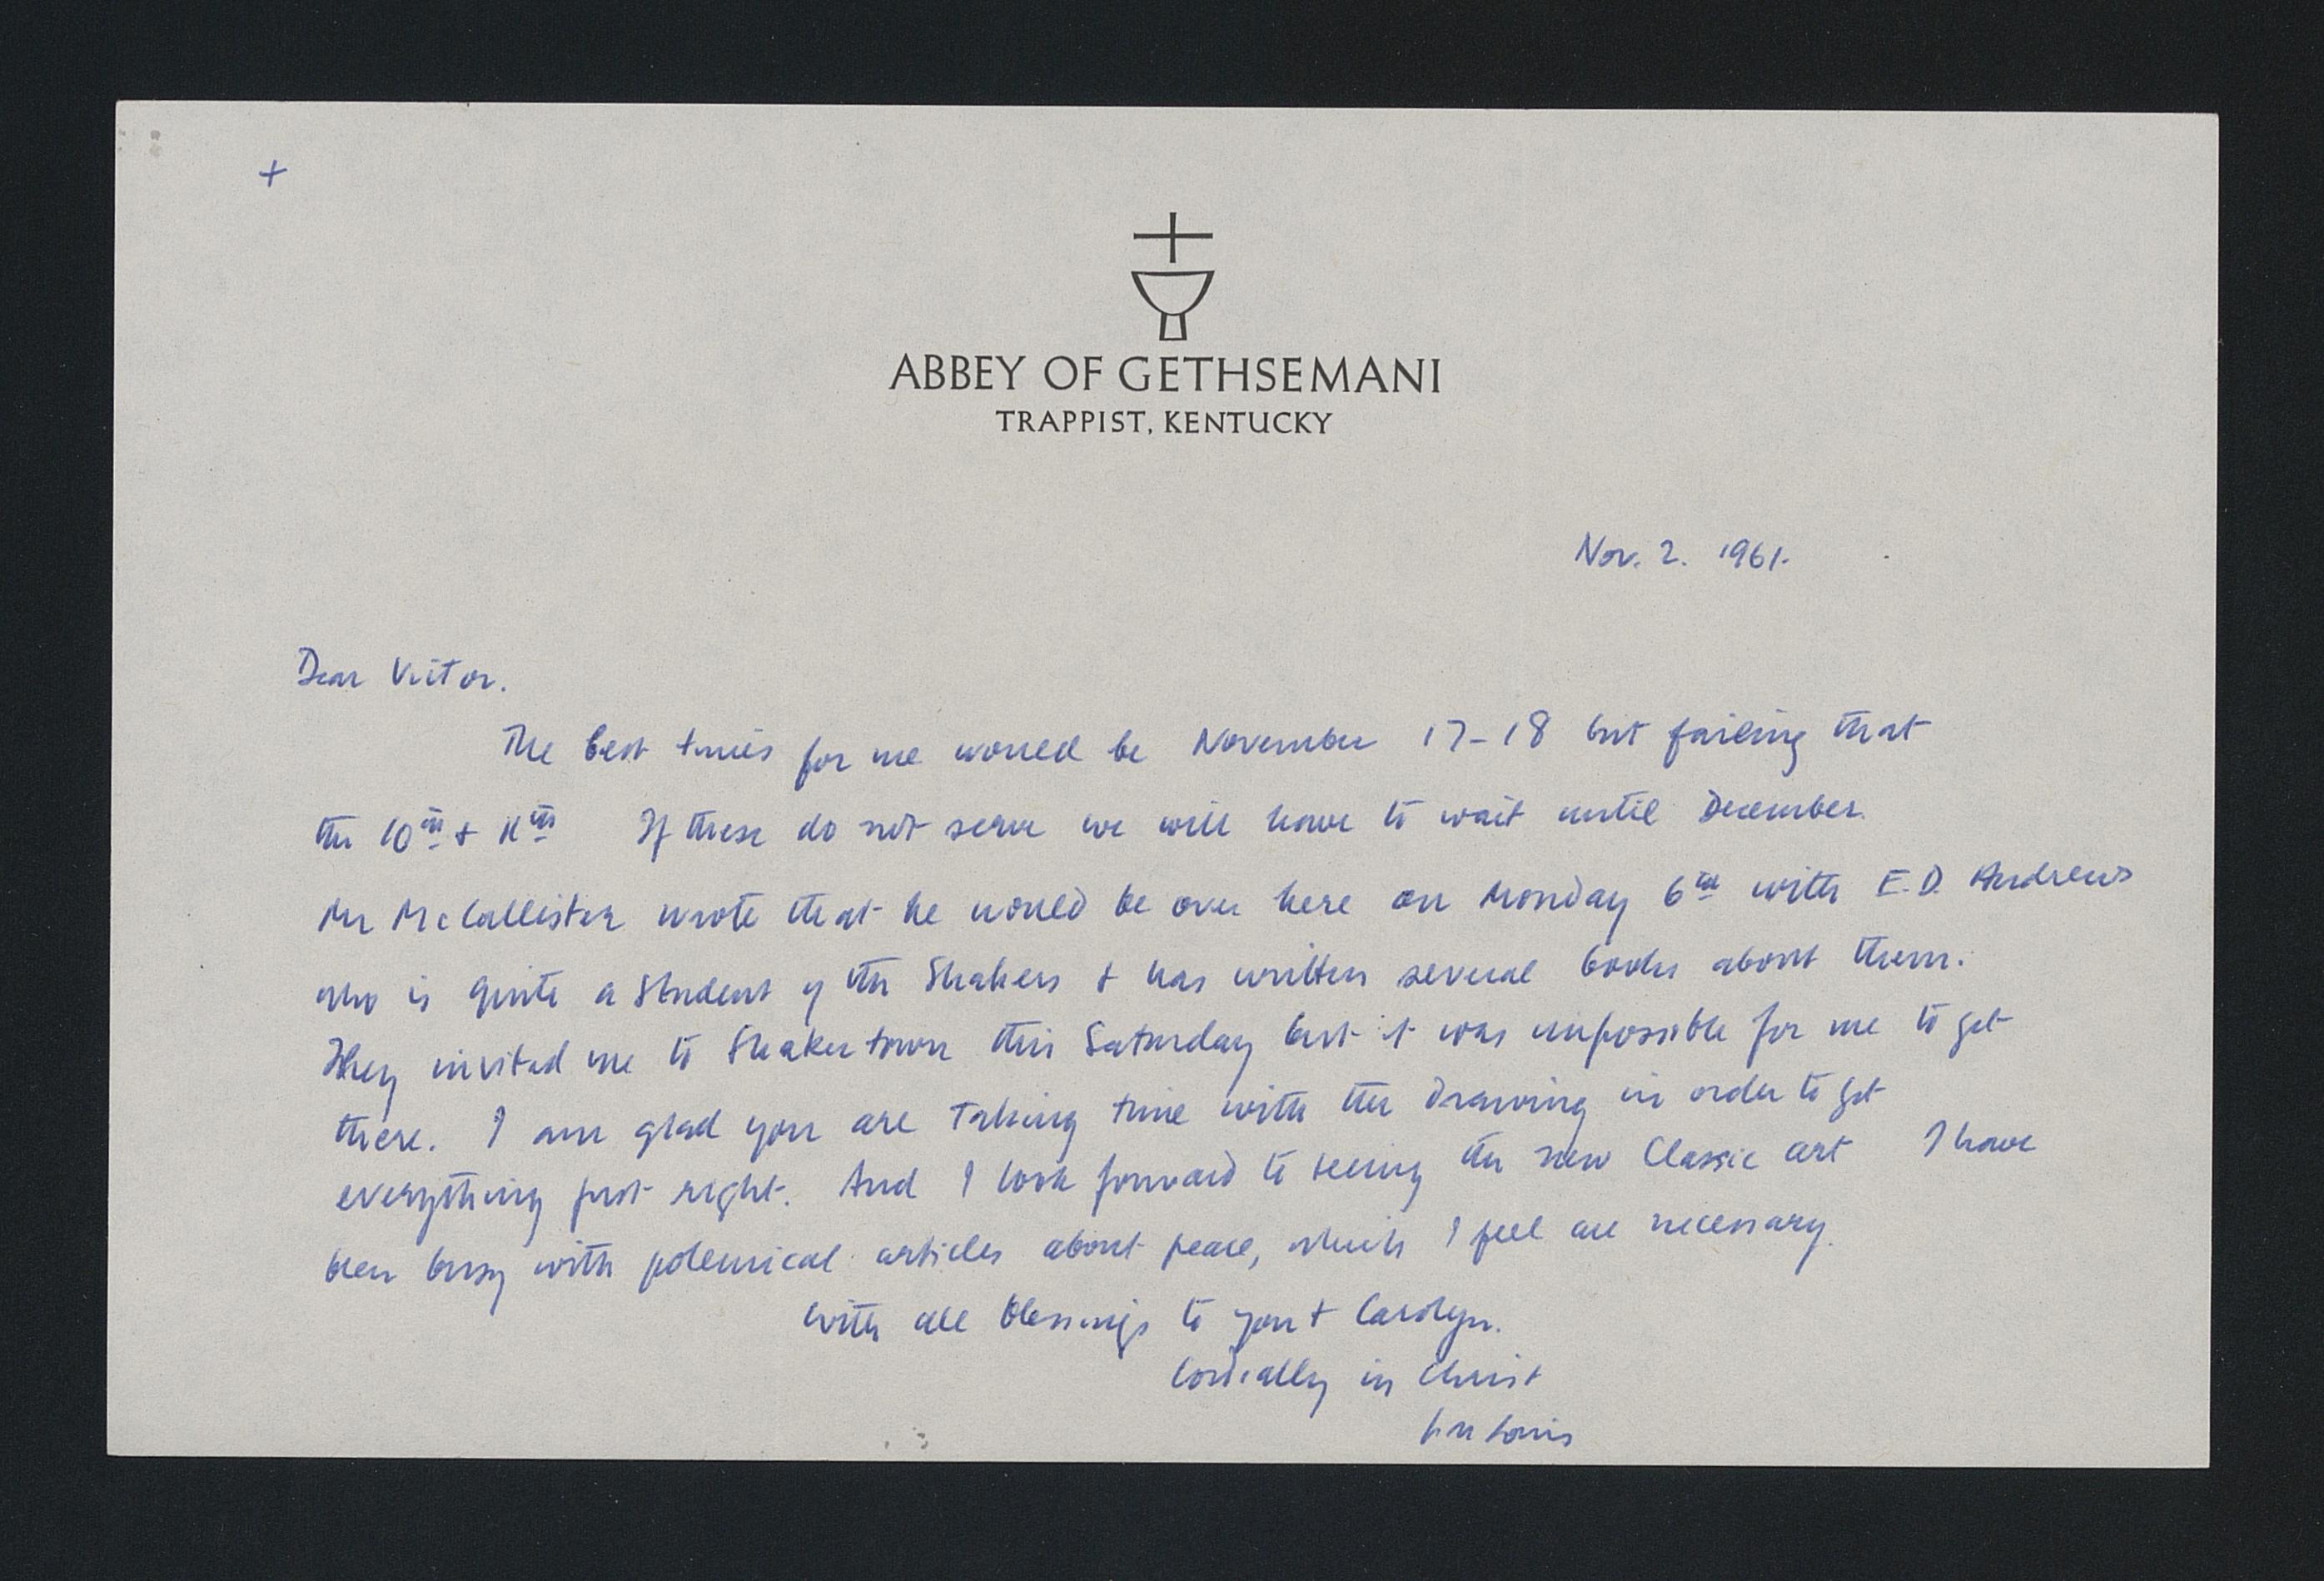 +
ABBEY OF GETHSEMANI
TRAPPIST, KENTUCKY
Nov. 2. 1961.
Dear Victor.
The best times for me would be November 17-18 but failing that
the 10th + 11th If these do not serve we will have to wait until December.
Mr McCallister wrote that he would be over here on Monday 6th with E.D. Andrews
who is quite a student of the Shakers + has written several books about them.
They invited me to Shakertown this Saturday but it was impossible for me to get
there. I am glad you are taking time with the drawing in order to get
everything just right. And I look forward to seeing the new Classic art I have
been busy with polemical articles about peace, which I feel are necessary.
With all blessings to you + Carolyn.
Cordially in Christ
fr m Louis